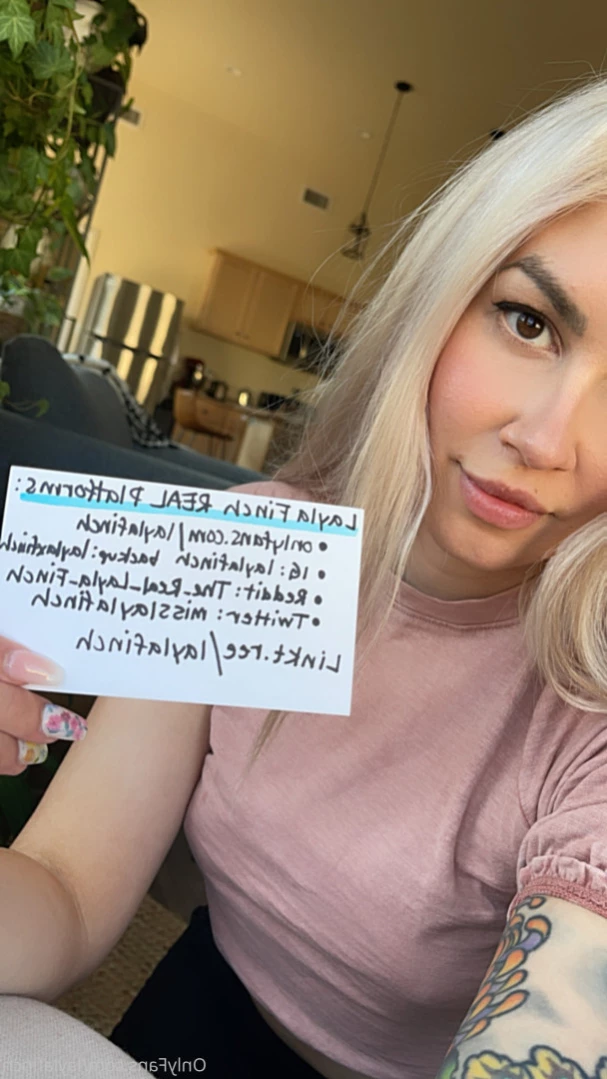 Layla Finch REAL Platforms:
• onlyfans.com/laylafinch
• IG: laylafinch backup: laylaxfinch
• Reddit: The_Real_Layla_Finch
• Twitter: misslaylafinch
Linkt.ree/laylafinch
OnlyFans.com/laylafinch